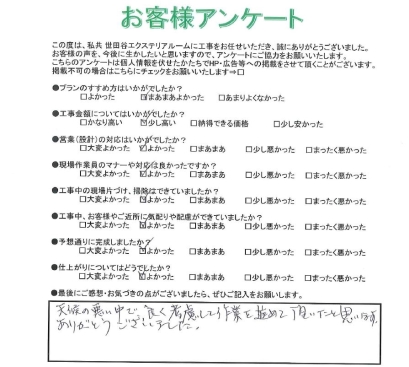 お客様アンケート
この度は、私共 世田谷エクステリアルームに工事をお任せいただき、誠にありがとうございました。
お客様の声を、今後に生かしたいと思いますので、アンケートにご協力をお願いします。
こちらのアンケートは個人情報を伏せたかたちでHP・広告等への掲載をさせて頂くことがございます。
掲載不可の場合はこちらにチェックをお願いいたします⇒□
●プランのすすめ方はいかがでしたか?
□よかった ☑まあまあよかった □あまりよくなかった
●工事金額についてはいかがでしたか?
□かなり高い ☑少し高い □納得できる価格 □少し安かった
●営業(設計)の対応はいかがでしたか?
□大変よかった ☑よかった □まあまあ □少し悪かった □まったく悪かった
●現場作業員のマナーや対応は良かったですか?
□大変よかった ☑よかった □まあまあ □少し悪かった □まったく悪かった
●工事中の現場片づけ、掃除はできていましたか?
□大変よかった ☑よかった □まあまあ □少し悪かった □まったく悪かった
●工事中、お客様やご近所に気配りや配慮ができていましたか?
□大変よかった ☑よかった □まあまあ □少し悪かった □まったく悪かった
●予想通りに完成しましたか?
□大変よかった ☑よかった □まあまあ □少し悪かった □まったく悪かった
●仕上がりについてはどうでしたか?
□大変よかった ☑よかった □まあまあ □少し悪かった □まったく悪かった
●最後にご感想・お気づきの点がございましたら、ぜひご記入をお願します。
天候の悪い中で良く考慮して作業を進めて頂いたと思います。
ありがとうございました。